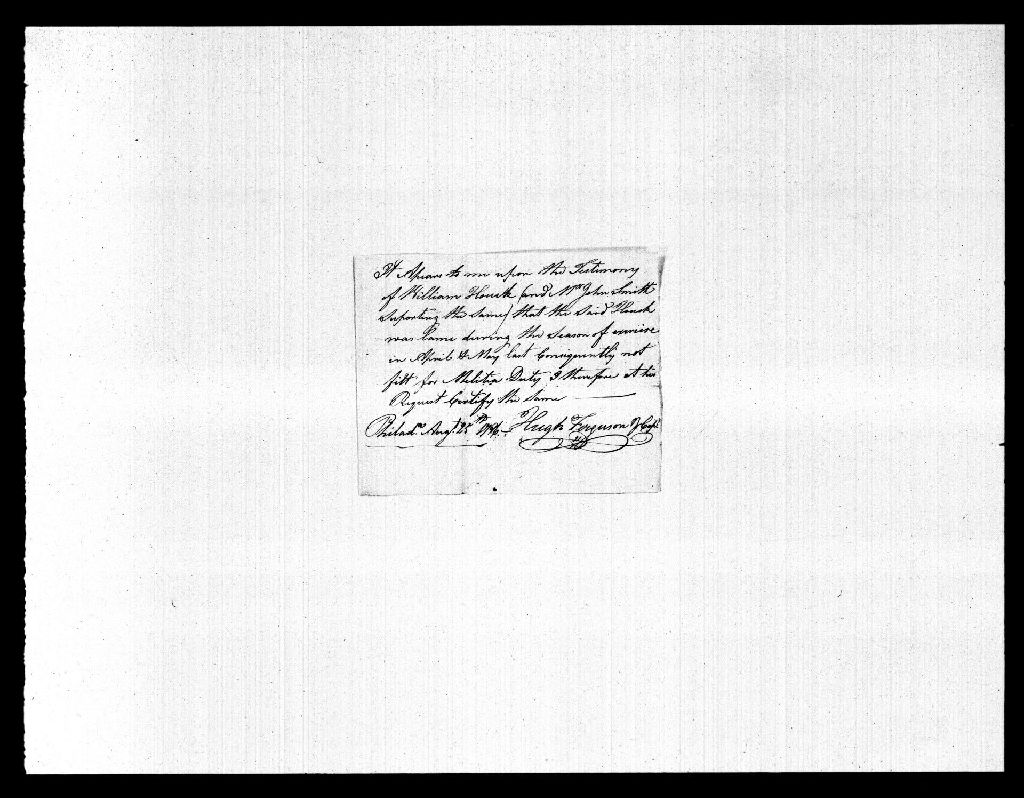 It Apears to me upon the Testimony
of William Houck (and Mr John Smith
Suporting the Same) that the Said Houck
was Lame during the Season of exercise
in April & May last Consiquently not
fitt for Militia Duty I therefore At his
Request Certify the Same
Philada Augt 1786. Hugh Ferguson Capt